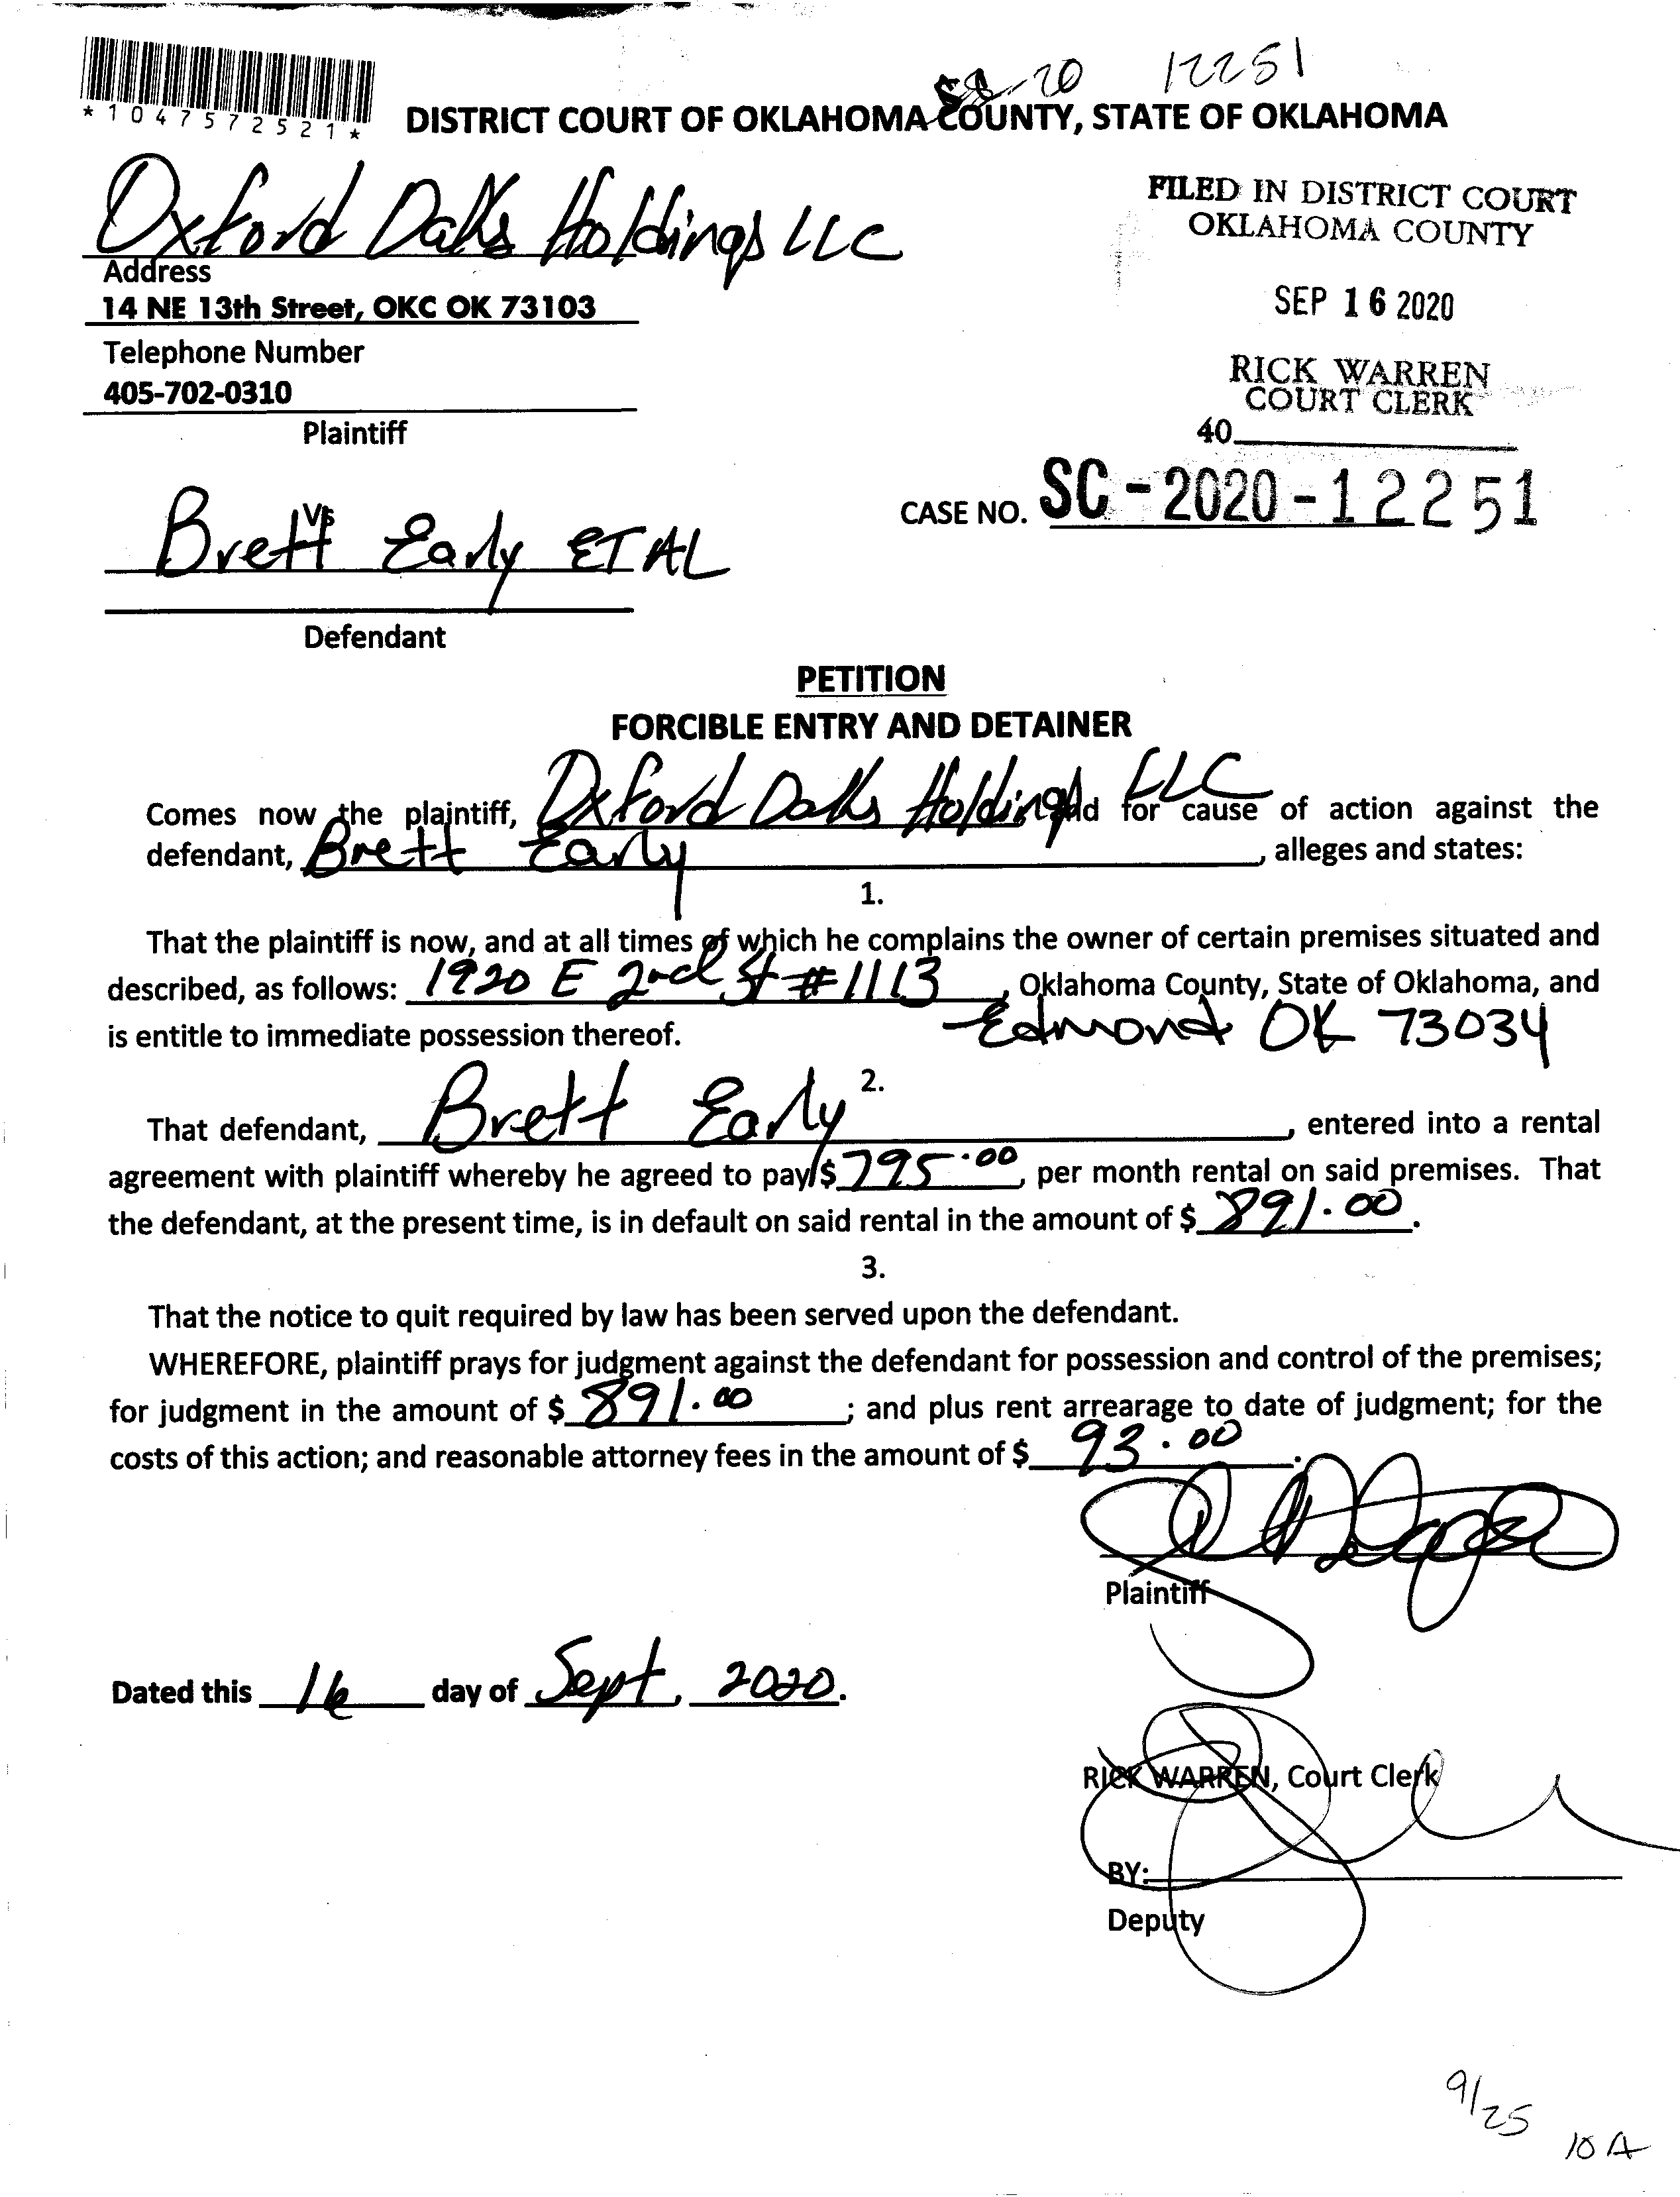 20 12251
*1047572521*
DISTRICT COURT OF OKLAHOMA COUNTY, STATE OF OKLAHOMA
Oxford Oaks Holdings LLC
Address
14 NE 13th Street, OKC OK 73103
Telephone Number
405-702-0310
Plaintiff
FILED IN DISTRICT COURT
OKLAHOMA COUNTY
SEP 16 2020
RICK WARREN
COURT CLERK
40
CASE NO. SC-2020-12251
Vs
Brett Early ET AL
Defendant
PETITION
FORCIBLE ENTRY AND DETAINER
Comes now the plaintiff, Oxford Oaks Holdings LLC and for cause of action against the
defendant, Brett Early, alleges and states:
1.
That the plaintiff is now, and at all times of which he complains the owner of certain premises situated and
described, as follows: 1920 E 2nd St #1113, Oklahoma County, State of Oklahoma, and
is entitle to immediate possession thereof. Edmond OK 73034
2.
That defendant, Brett Early, entered into a rental
agreement with plaintiff whereby he agreed to pay $ 795.00, per month rental on said premises. That
the defendant, at the present time, is in default on said rental in the amount of $ 891.00.
3.
That the notice to quit required by law has been served upon the defendant.
WHEREFORE, plaintiff prays for judgment against the defendant for possession and control of the premises;
for judgment in the amount of $ 891.00; and plus rent arrearage to date of judgment; for the
costs of this action; and reasonable attorney fees in the amount of $ 93.00.
Plaintiff
Dated this 16 day of Sept, 2020.
RICK WARREN, Court Clerk
BY:
Deputy
9/25
10 A